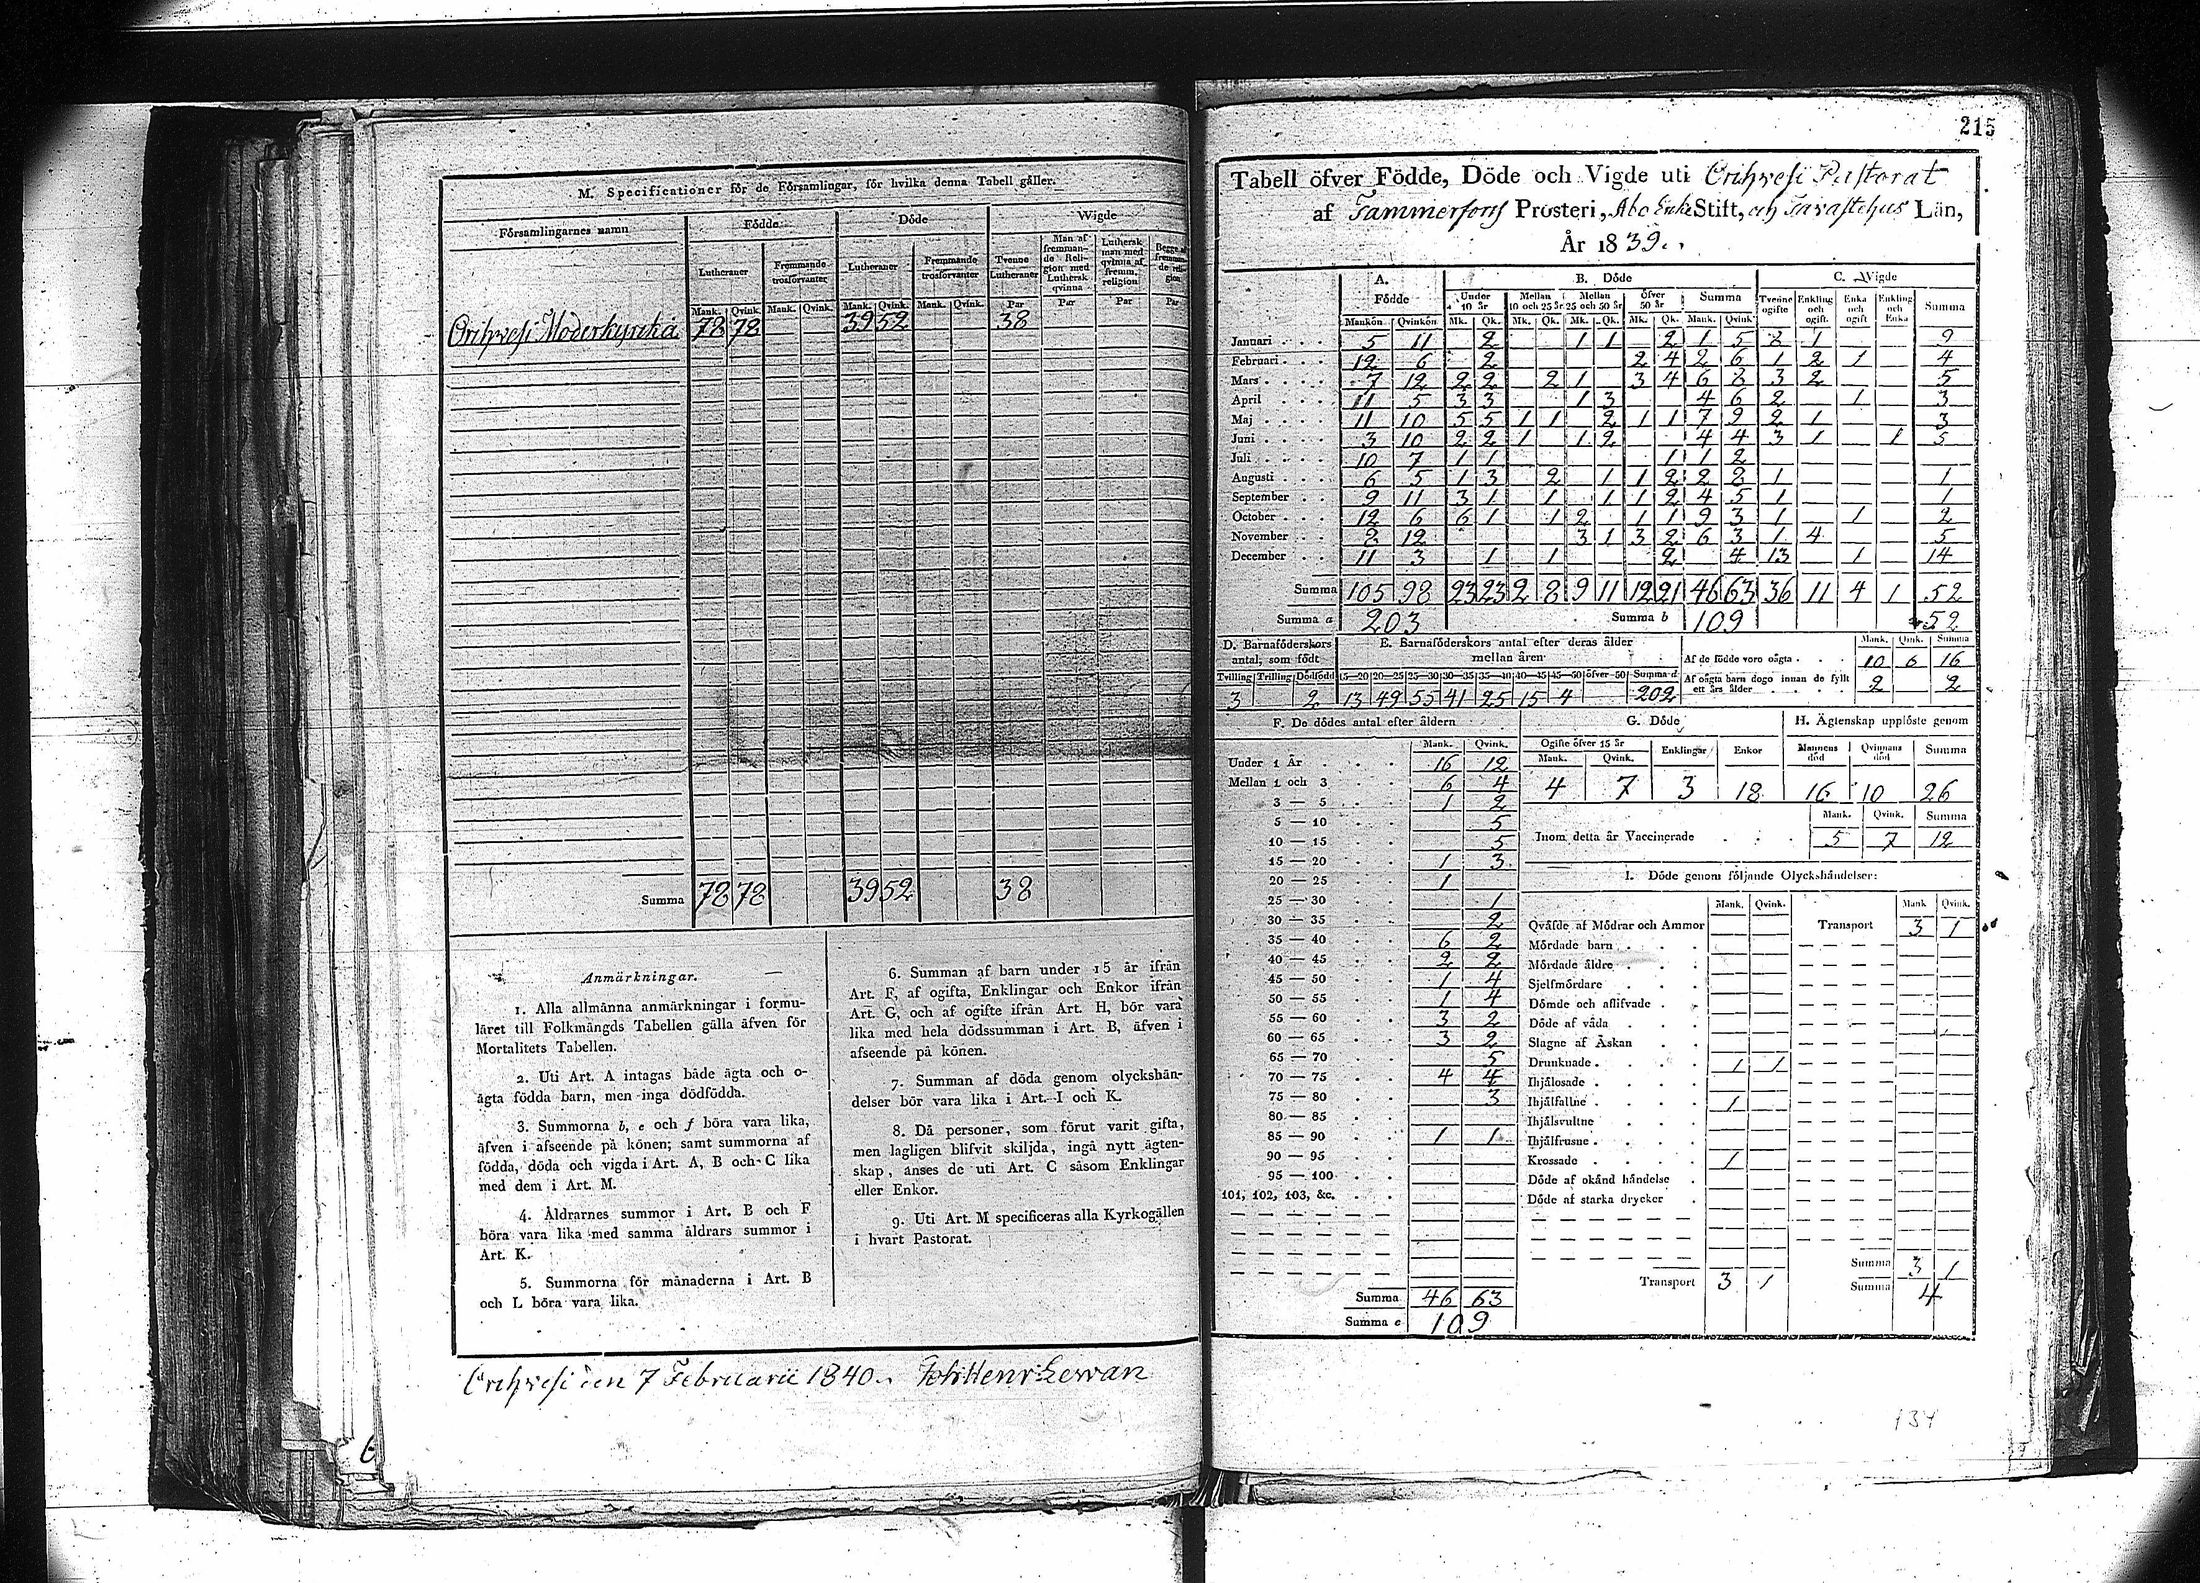 M. Specificationer för de Församlingar, för hvilka denna Tabell gäller.
Församlingarnes namn | Födde | Döde | Wigde
Lutheraner | Fremmande trosförvanter | Lutheraner | Fremmande trosförvanter | Tvenne Lutheraner | Man af fremmande Religion med Luthersk qvinna | Luthersk man med qvinna af fremm. religion | Begge af fremmande religion
Mank. Qvink. Mank. Qvink. Mank. Qvink. Mank. Qvink. Par Par Par Par
Orihvesi Moderkyrka 78 78 39 52 38
Summa 78 78 39 52 38
Anmärkningar.
1. Alla allmänna anmärkningar i formu-
läret till Folkmängds Tabellen gälla äfven för
Mortalitets Tabellen.
2. Uti Art. A intagas både ägta och o-
ägta födda barn, men inga dödfödda.
3. Summorna b, e och f böra vara lika,
äfven i afseende på könen; samt summorna af
födda, döda och vigda i Art. A, B och C lika
med dem i Art. M.
4. Åldrarnes summor i Art. B och F
böra vara lika med samma åldrars summor i
Art. K.
5. Summorna för månaderna i Art. B
och L böra vara lika.
6. Summan af barn under 15 år ifrån
Art. F, af ogifta, Enklingar och Enkor ifrån
Art. G, och af ogifte ifrån Art. H, bör vara
lika med hela dödssumman i Art. B, äfven i
afseende på könen.
7. Summan af döda genom olyckshän-
delser bör vara lika i Art. I och K.
8. Då personer, som förut varit gifta,
men lagligen blifvit skiljda, ingå nytt ägten-
skap, anses de uti Art. C såsom Enklingar
eller Enkor.
9. Uti Art. M specificeras alla Kyrkogällen
i hvart Pastorat.
Orihvesi den 7 Februarii 1840. Joh Henr: Lewan
6
215
Tabell öfver Födde, Döde och Vigde uti Orihvesi Pastorat
af Tammerfors Prosteri, Abo Erke Stift, och Tavastehus Län,
År 1839.
A. Födde | B. Döde | C. Wigde
Under 10 år | Mellan 10 och 25 år | Mellan 25 och 50 år | Öfver 50 år | Summa | Tvenne ogifte | Enkling och ogift. | Enka och ogift | Enkling och Enka | Summa
Mankön Qvinkön Mk. Qk. Mk. Qk. Mk. Qk. Mk. Qk. Mank. Qvink.
Januari 5 11 2 1 1 2 1 5 8 1 9
Februari 12 6 2 2 4 2 6 1 2 1 4
Mars 7 12 2 2 2 1 3 4 6 8 3 2 5
April 11 5 3 3 1 3 4 6 2 1 3
Maj 11 10 5 5 1 1 2 1 1 7 9 2 1 3
Juni 3 10 2 2 1 1 2 4 4 3 1 1 5
Juli 10 7 1 1 1 1 2
Augusti 6 5 1 3 2 1 1 2 2 8 1 1
September 9 11 3 1 1 1 1 2 4 5 1 1
October 12 6 6 1 1 2 1 1 9 3 1 1 2
November 8 12 3 1 3 2 6 3 1 4 5
December 11 3 1 1 2 4 13 1 14
Summa 105 98 23 23 2 8 9 11 12 21 46 63 36 11 4 1 52
Summa a 203 Summa b 109 52
D. Barnaföderskors antal, som födt
Tvilling Trilling Dödfödd
3 2
E. Barnaföderskors antal efter deras ålder
mellan åren
15—20 20—25 25—30 30—35 35—40 40—45 45—50 öfver 50 Summa d
13 49 55 41 25 15 4 202
Mank. Qink. Summa
Af de födde voro oägta 10 6 16
Af oägta barn dogo innan de fyllt
ett års ålder 2 2
F. De dödes antal efter åldern
Mank. Qvink.
Under 1 År 16 12
Mellan 1 och 3 6 4
3 — 5 1 2
5 — 10 5
10 — 15 5
15 — 20 1 3
20 — 25 1
25 — 30 1
30 — 35 2
35 — 40 6 2
40 — 45 2 2
45 — 50 1 4
50 — 55 1 4
55 — 60 3 2
60 — 65 3 2
65 — 70 5
70 — 75 4 4
75 — 80 3
80 — 85
85 — 90 1 1
90 — 95
95 — 100
101, 102, 103, &c.
Summa 46 63
Summa e 109
G. Döde
Ogifte öfver 15 år Enklingar Enkor
Mank. Qvink.
4 7 3 18
H. Ägtenskap upplöste genom
Mannens död Qvinnans död Summa
16 10 26
Mank. Qvink. Summa
Inom detta år Vaccinerade 5 7 12
I. Döde genom följande Olyckshändelser:
Mank. Qvink. Mank Qvink.
Qväfde af Mödrar och Ammor Transport 3 1
Mördade barn
Mördade äldre
Sjelfmördare
Dömde och aflifvade
Döde af våda
Slagne af Åskan
Drunknade 1 1
Ihjälosade
Ihjälfallne 1
Ihjälsvultne
Ihjälfrusne
Krossade 1
Döde af okänd händelse
Döde af starka drycker
Transport 3 1
Summa 3 1
Summa 4
134